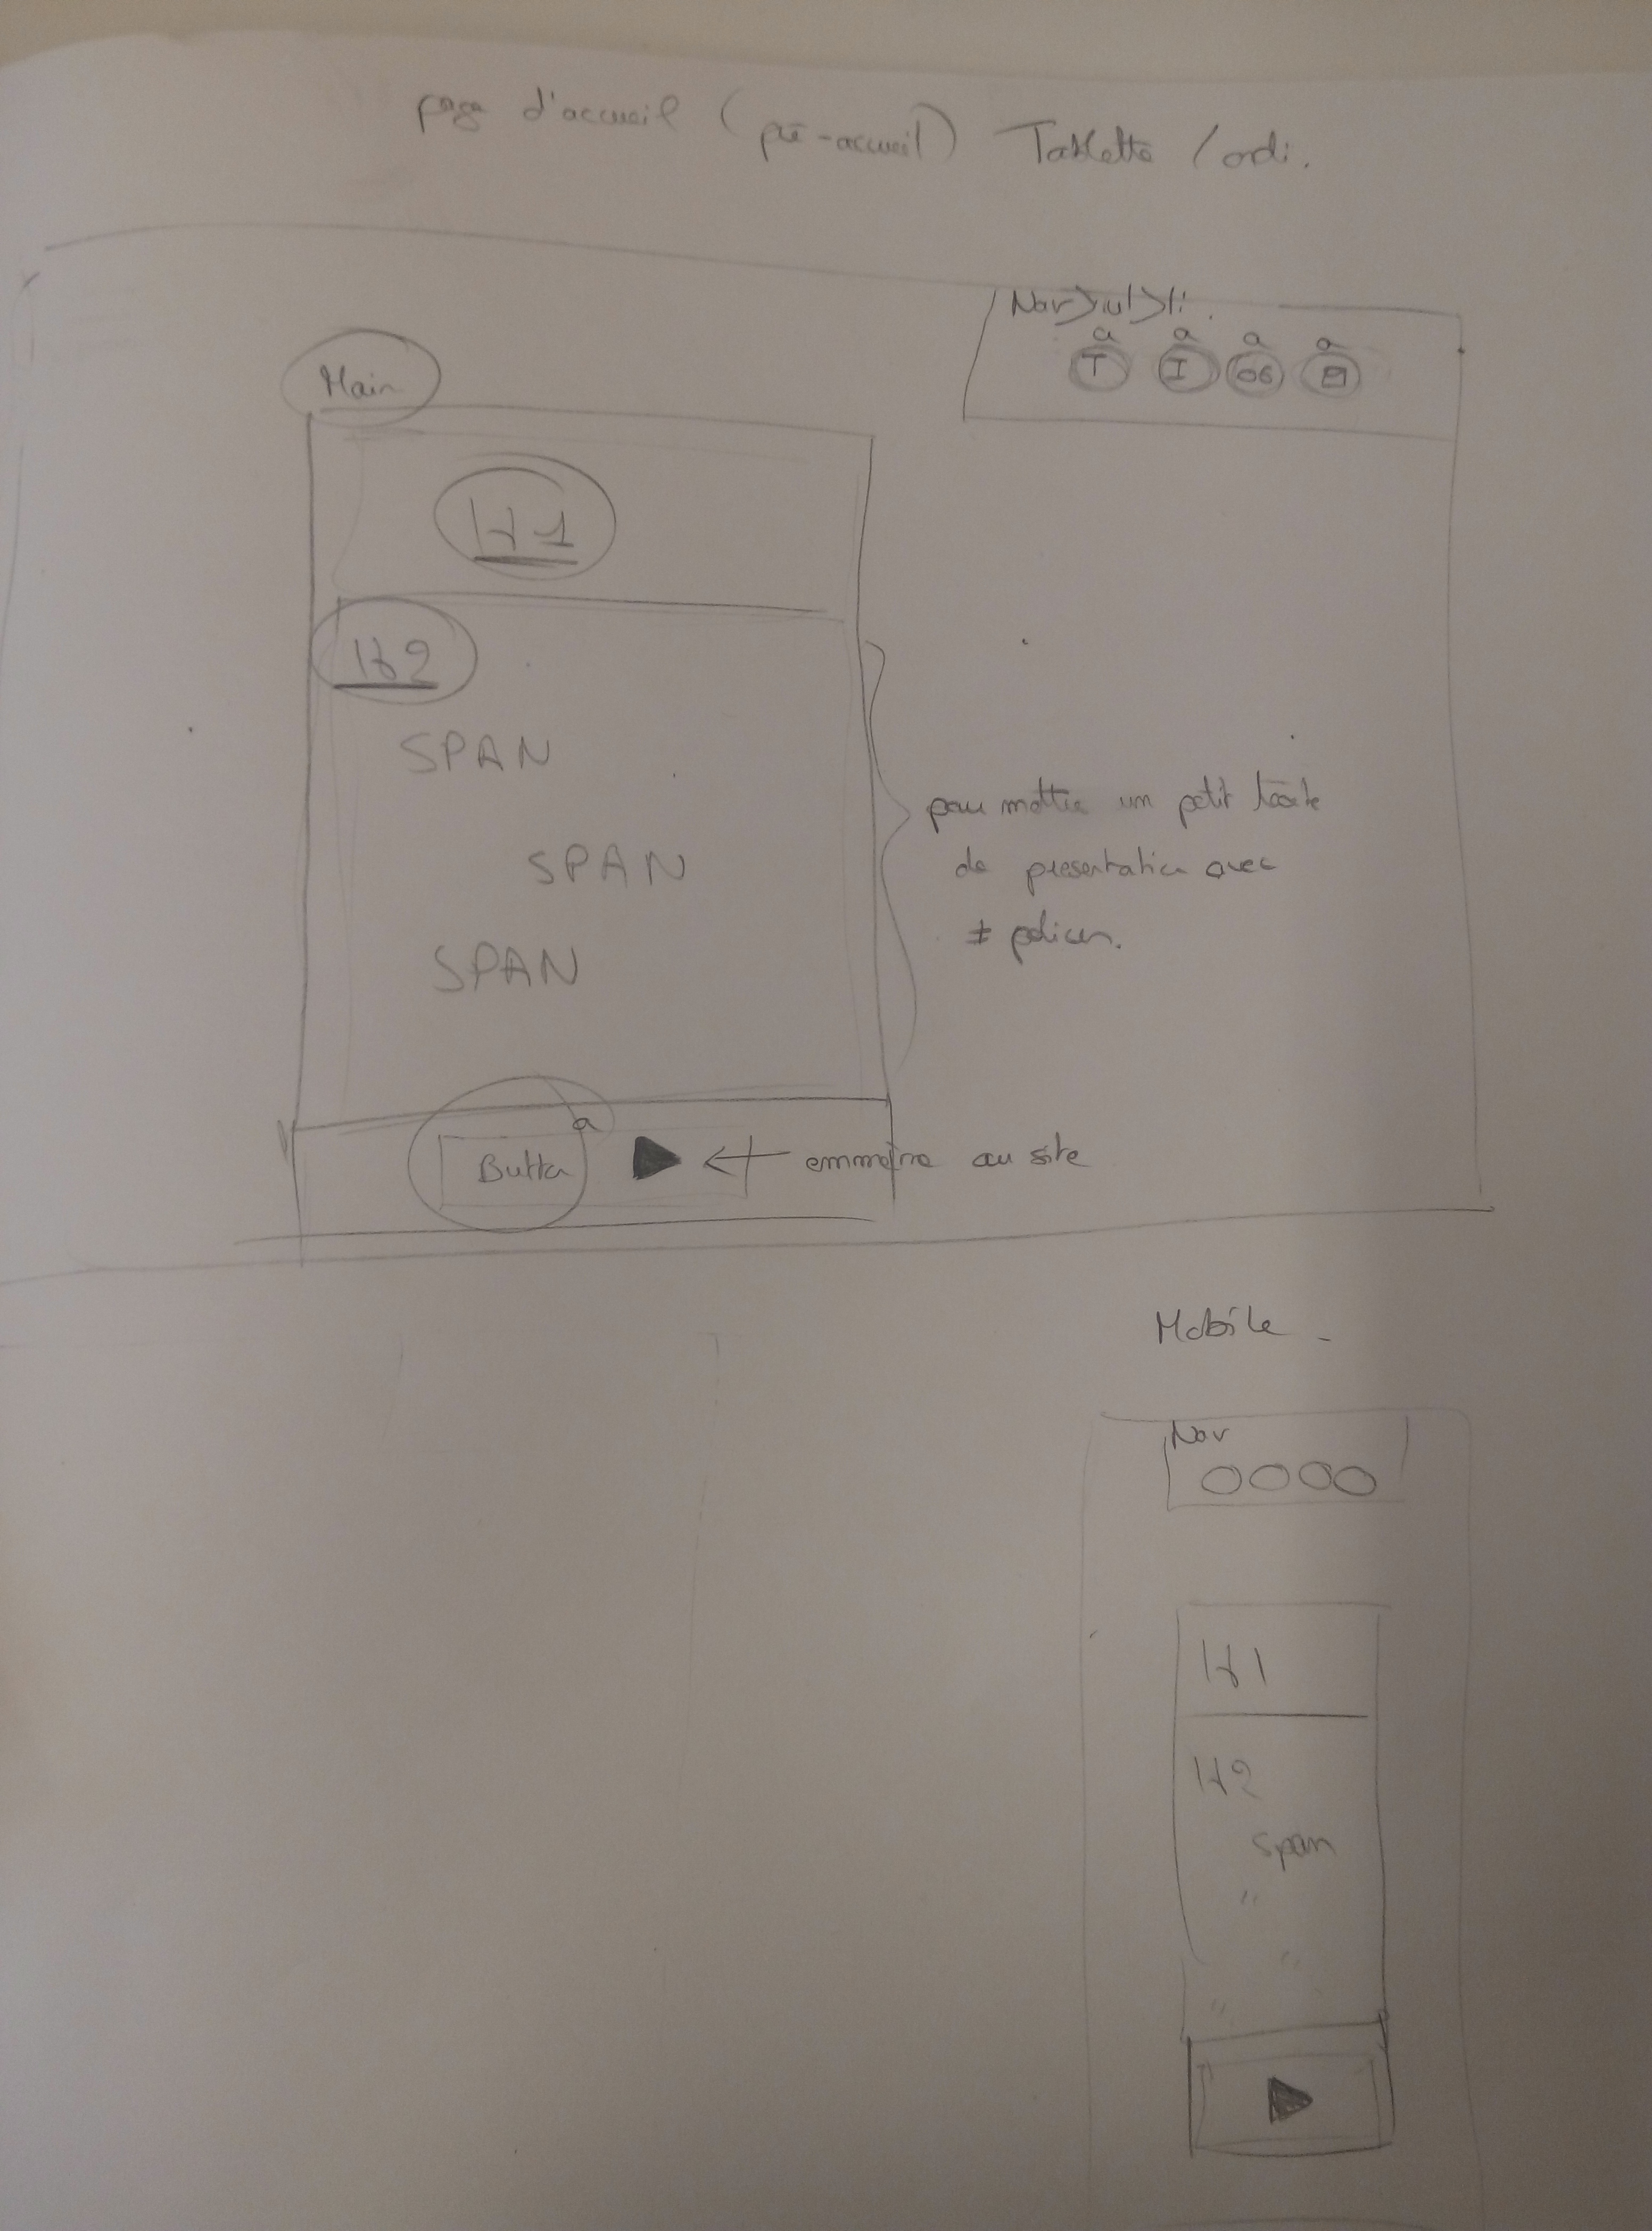 page d'accueil (pré-accueil) Tablette / ordi.
Nav>ul>li
a a a a
T I 06
Main
H1
H2
SPAN
SPAN
SPAN
pour mettre un petit texte
de presentation avec
≠ polices.
a
Button
emmène au site
Mobile
Nav
H1
H2
span
"
"
"